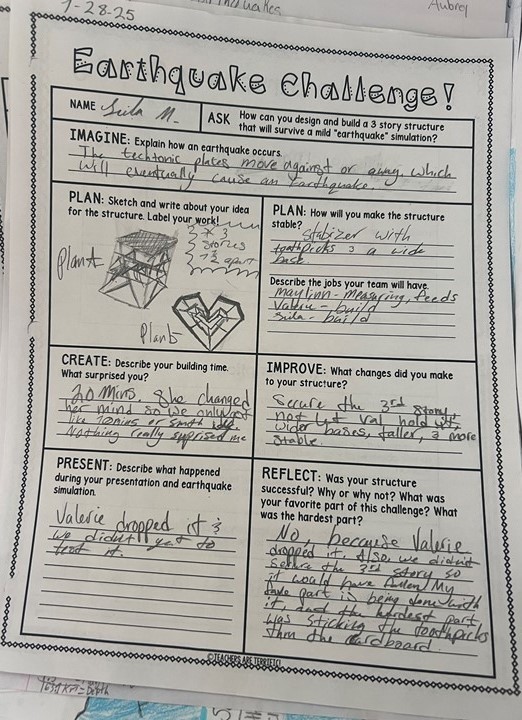 7-28-25
Aubrey
Earthquake Challenge!
NAME Sila M.
ASK How can you design and build a 3 story structure
that will survive a mild "earthquake" simulation?
IMAGINE: Explain how an earthquake occurs.
The techtonic plates move against or away which
will eventually cause an Earthquake.
PLAN: Sketch and write about your idea
for the structure. Label your work!
3
stories
7½ apart
PlanA
Planb
PLAN: How will you make the structure
stable?
Stabizer with
toothpicks & a wide
base
Describe the jobs your team will have.
maylinn - measuring, feeds
Valerie - build
Sila - build
CREATE: Describe your building time.
What surprised you?
20 mins. She changed
her mind so we only got
like 10mins or smth
Nothing really suprised me
IMPROVE: What changes did you make
to your structure?
Secure the 3rd story,
not let Val hold it,
wider bases, taller, & more
stable.
PRESENT: Describe what happened
during your presentation and earthquake
simulation.
Valerie dropped it &
we didnt get to
test it.
REFLECT: Was your structure
successful? Why or why not? What was
your favorite part of this challenge? What
was the hardest part?
No, because Valerie
dropped it. Also, we didnit
secure the 3rd story so
it would have fallen. My
fave part is being done with
it, and the hardest part
was sticking the toothpicks
thru the cardboard.
©TEACHERS ARE TERRIFIC!